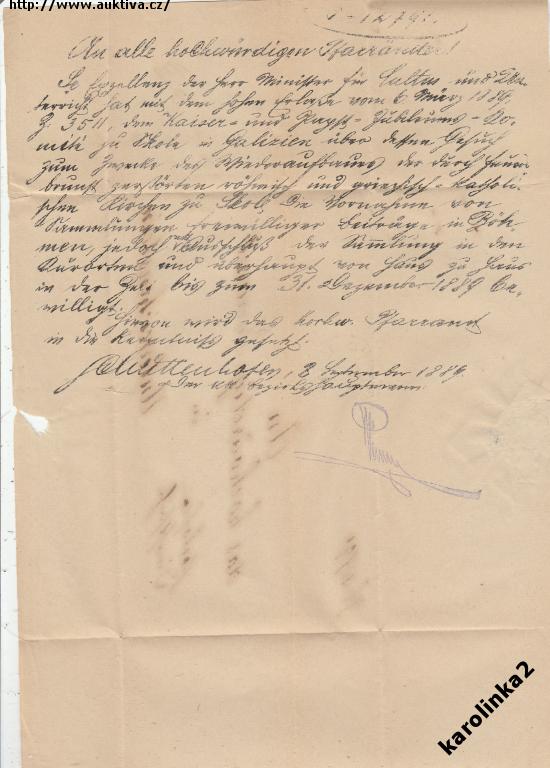 http://www.auktiva.cz/
An alle hochwürdigen Pfarrämter!
Se Exzellenz der Herr Minister für Cultus und Un-
terricht hat mit dem hohen Erlasse vom 6. März 1889,
Z. 5511, dem Kaiser- und Papst-Jubiläums-Co-
mité zu Skole in Galizien über dessen Gesuch
zum Zwecke des Wiederaufbaues der durch Feuers-
brunst zerstörten römisch und griechisch-katholi-
schen Kirchen zu Skole die Vornahme von
Sammlungen freiwilliger Beiträge in Böh-
men, jedoch mit Ausschluß der Sammlung in den
Kurorten und überhaupt von Haus zu Haus
in der Zeit bis zum 31. Dezember 1889 be-
willigt.
Hievon wird das hochw. Pfarramt
in die Kenntniß gesetzt.
Schüttenhofen, September 1889.
Der k.k. Bezirkshauptmann:
karolinka2